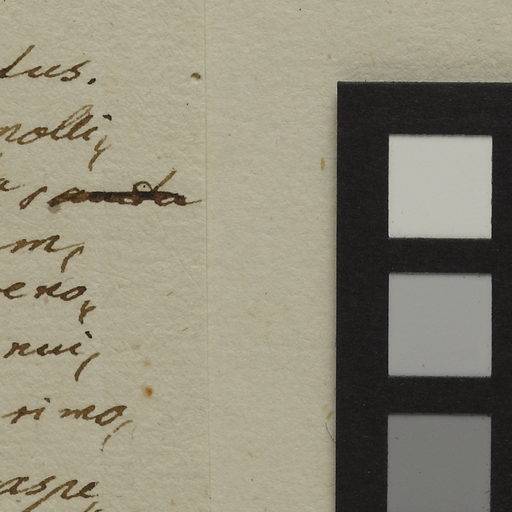 tus.
molli,
a
m,
ero,
nui,
rimo,
aspe,